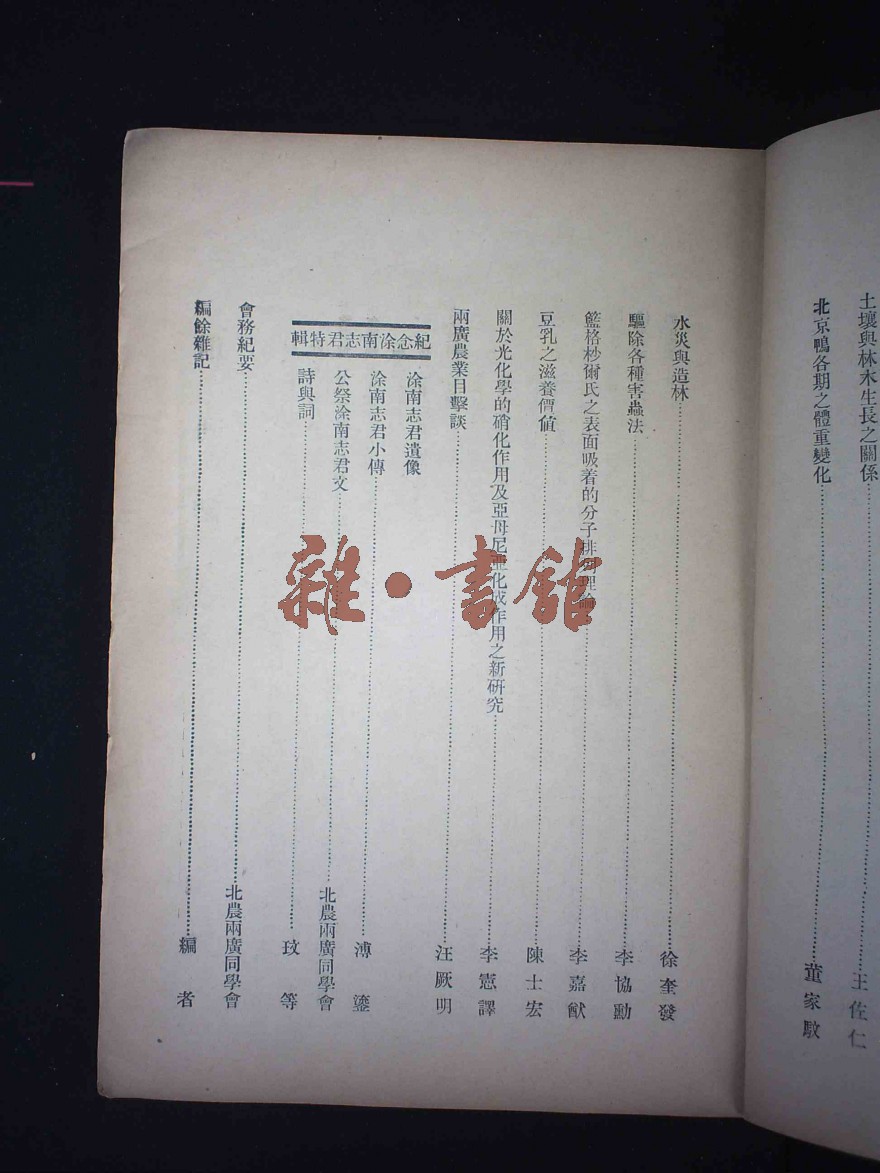 土壤與林木生長之關係 王佐仁
北京鴨各期之體重變化 董家馼
水災與造林 徐奎發
驅除各種害蟲法 李協勳
籃格杪爾氏之表面吸着的分子排列理論 李嘉猷
豆乳之滋養價值 陳士宏
關於光化學的硝化作用及亞母尼亞化成作用之新研究 李憲譯
兩廣農業目擊談 汪厥明
紀念涂南志君特輯
涂南志君遺像
涂南志君小傳 溥鎏
公祭涂南志君文 北農兩廣同學會
詩與詞 玟等
會務紀要 北農兩廣同學會
編餘雜記 編者
雜·書館